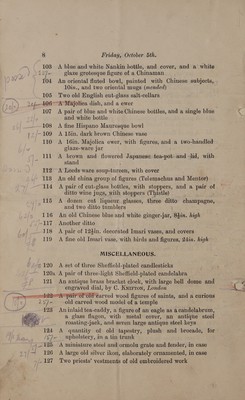 6 Friday, October 5th.
103 A blue and white Nankin bottle, and cover, and a white
glass grotesque figure of a Chinaman
104 An oriental fluted bowl, painted with Chinese subjects,
10in., and two oriental mugs (mended)
105 Two old English cut-glass salt-cellars
106 A Majolica dish, and a ewer
107 A pair of blue and white Chinese bottles, and a single blue
and white bottle
108 A fine Hispano Mauresque bowl
109 A 15in. dark brown Chinese vase
110 A 16in. Majolica ewer, with figures, and a two-handled
glaze-ware jar
111 A brown and flowered Japanese tea-pot and lid, with
stand
112 A Leeds ware soup-tureen, with cover
113 An old china group of figures (Telemachus and Mentor)
114 A pair of cut-glass bottles, with stoppers, and a pair of
ditto wine jugs, with stoppers (Thistle)
115 A dozen cut liqueur glasses, three ditto champagne,
and two ditto tumblers
116 An old Chinese blue and white ginger-jar, 8½in. high
117 Another ditto
118 A pair of 12½in. decorated Imari vases, and covers
119 A fine old Imari vase, with birds and figures, 24in. high
MISCELLANEOUS.
120 A set of three Sheffield-plated candlesticks
120A A pair of three-light Sheffield-plated candelabra
121 An antique brass bracket clock, with large bell dome and
engraved dial, by C. Krifton, London
122 A pair of old carved wood figures of saints, and a curious
old carved wood model of a temple
123 An inlaid tea-caddy, a figure of an eagle as a candelabrum,
a glass flagon, with metal cover, an antique steel
roasting-jack, and seven large antique steel keys
124 A quantity of old tapestry, plush and brocade, for
upholstery, in a tin trunk
125 A miniature steel and ormolu grate and fender, in case
126 A large old silver ikon, elaborately ornamented, in case
127 Two priests' vestments of old embroidered work